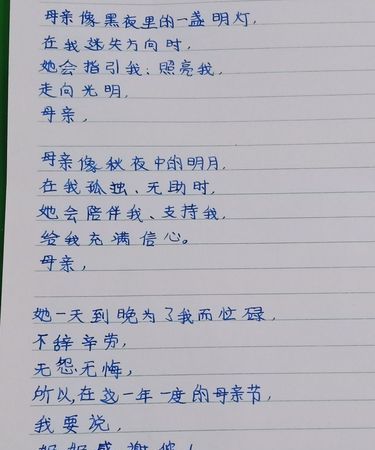 母亲像黑夜里的一盏明灯，
在我迷失方向时，
她会指引我、照亮我，
走向光明。
母亲，
母亲像秋夜中的明月，
在我孤独、无助时，
她会陪伴我、支持我，
给我充满信心。
母亲，
她一天到晚为了我而忙碌，
不辞辛劳，
无怨无悔，
所以，在这一年一度的母亲节，
我要说，
妈妈感谢您！